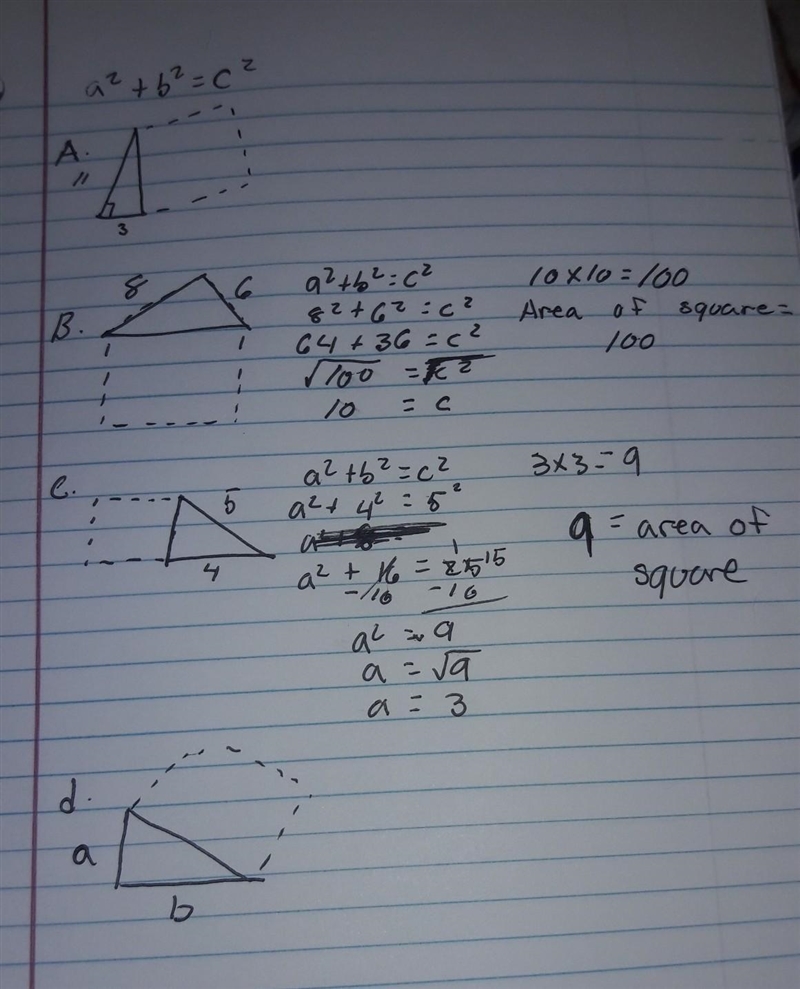 a² + b² = c²
A.
11
3
B.
8
6
a² + b² = c²
8² + 6² = c²
64 + 36 = c²
√100 = √c²
10 = c
10 × 10 = 100
Area of square =
100
C.
5
4
a² + b² = c²
a² + 4² = 5²
a² + 16 = 25 15
-16 -16
a² = 9
a = √9
a = 3
3×3 = 9
9 = area of
square
d.
a
b